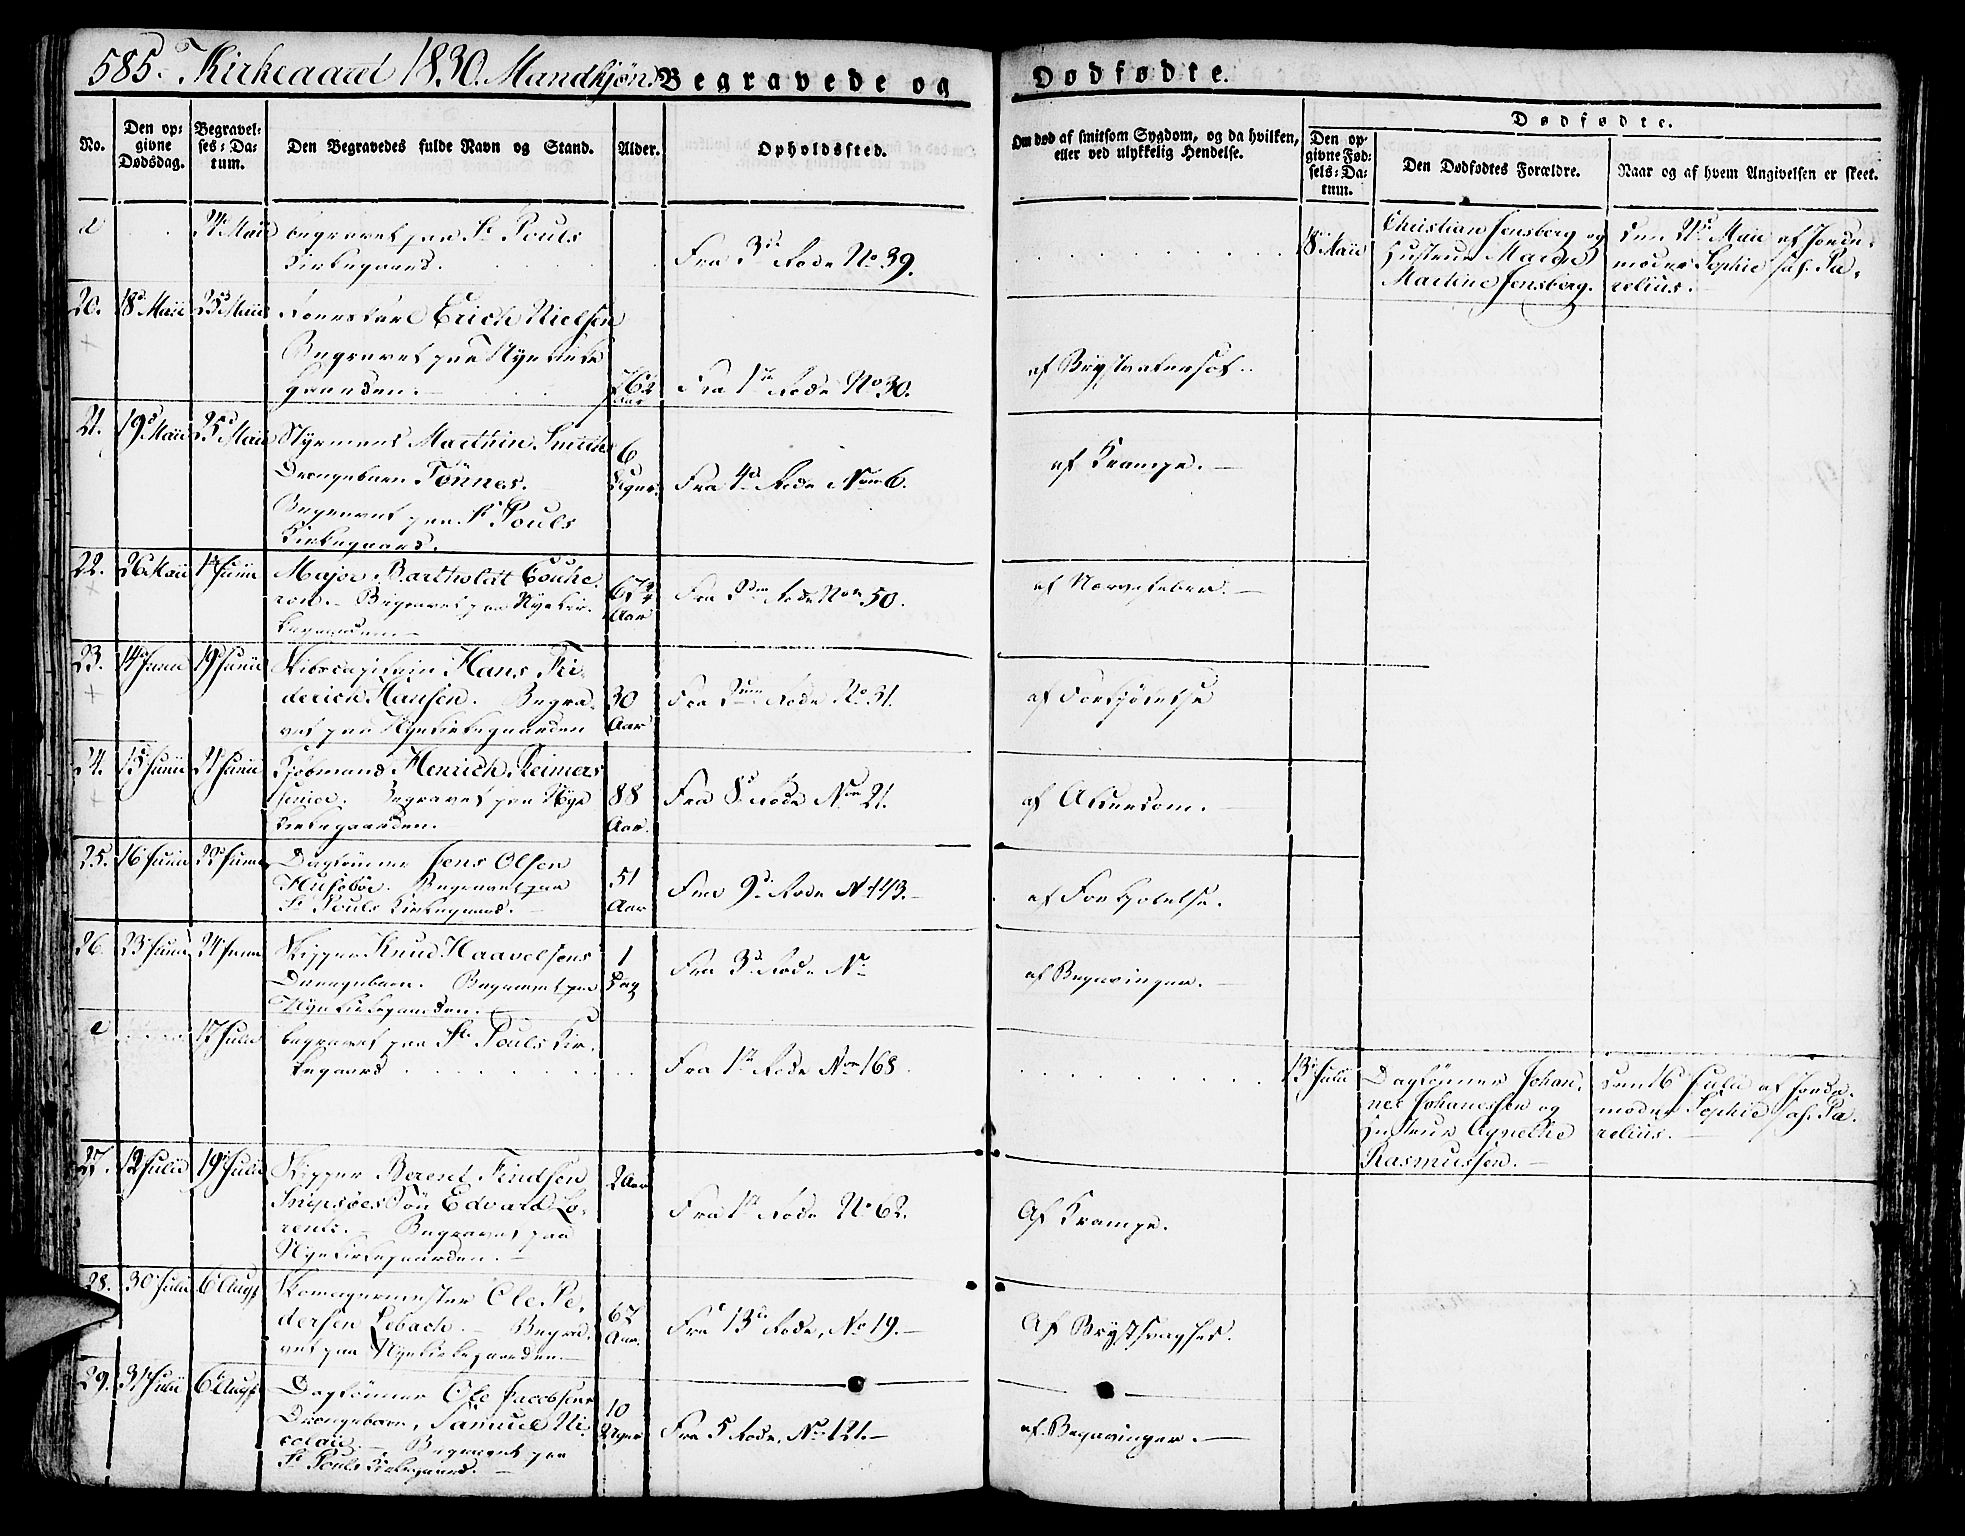 585. I Kirkeaaret 1830. Mandkjøn. Begravede og Dødfødte.
No.
Den opgivne Dødsdag.
Begravelses-Datum.
Den Begravedes fulde Navn og Stand.
Alder.
Opholdssted.
Om død af smitsom Sygdom, og da hvilken, eller ved ulykkelig Hendelse.
Dødfødte.
Den opgivne Fødsels-Datum.
Den Dødfødtes Forældre.
Naar og af hvem Angivelsen er skeet.
begravet paa St Pouls
Kirkegaard.
Fra 3de Rode No 39.
18 Maii
Christian Jensberg og
Hustrue Maren
Martine Jensberg.
den 21d Maii af Jorde-
moder Sophie sal. Pa-
relius.
20. 18d Maii 25d Maii
Erich Nielsen
Begravet paa Nye Kirke
gaarden.
762 Aar
Fra 1ste Rode No 30.
af Brystvatersot.
21. 19d Maii 25d Maii
Styrmand Marthin Smiths
Drengebarn Tönnes.
Begravet paa St Pouls
Kirkegaard.
6 Uger.
Fra 4de Rode No 6.
af Krampe.
22. 26 Maii 1st Junii
Major Bartholdt Couhe
ron. Begravet paa Nye Kir-
kegaarden
67 3/4 Aar
Fra Rode No 50.
af Nervefeber.
23. 14d Junii 19d Junii
Skibscapitain Hans Fri-
derich Hansen. Begra-
vet paa Nye Kirkegaarden
30 Aar
Fra Rode No 31.
af Forkjølelse
24. 15 Junii 21 Junii
Kjøbmand Henrich Reimers
senior. Begravet paa Nye
Kirkegaarden.
88 Aar.
Fra 8d Rode No 21.
af Alderdom.
25. 16 Junii 22d Junii
Dagl&oslash;nner Jens Olsen
Huseböe. Begravet paa
St Pouls Kirkegaard.
51 Aar
Fra 9d Rode No 143.
af Forkjølelse.
26. 23 Junii 24 Junii
Skipper Knud Haavelsens
Drengebarn. Begravet paa
Nye Kirkegaarden.
1 Dag
Fra 3d Rode No
af Begavinger.
17 Julii
begravet paa St Pouls Kir-
kegaard
Fra 1ste Rode No 168
13 Julii
Daglønner Johan-
nes Johanessen og
Hustrue Agnethe
Rasmussen.
den 16d Julii af Jorde-
moder Sophie sal. Pa-
relius.
27. 12 Julii 19 Julii
Skipper Berent Findsen
Søn Edvard Lo-
rentz. Begravet paa
Nye Kirkegaarden.
2 Aar
Fra 1ste Rode No 62.
Af Krampe.
28. 30 Julii 6 Aug
Skomagermester Ole Pe-
dersen Lebach. Begra-
vet paa Nye Kirkegaarden
67 Aar.
Fra 13de Rode, No 19.
Af Brystsvaghed.
29. 31 Julii 6 Aug
Daglønner Ole Jacobsens
Drengebarn, Samuel Ni-
colaii. Begravet paa
St Pouls Kirkegaard.
10 Uger
Fra 5 Rode, No 121.
af Begavinger.